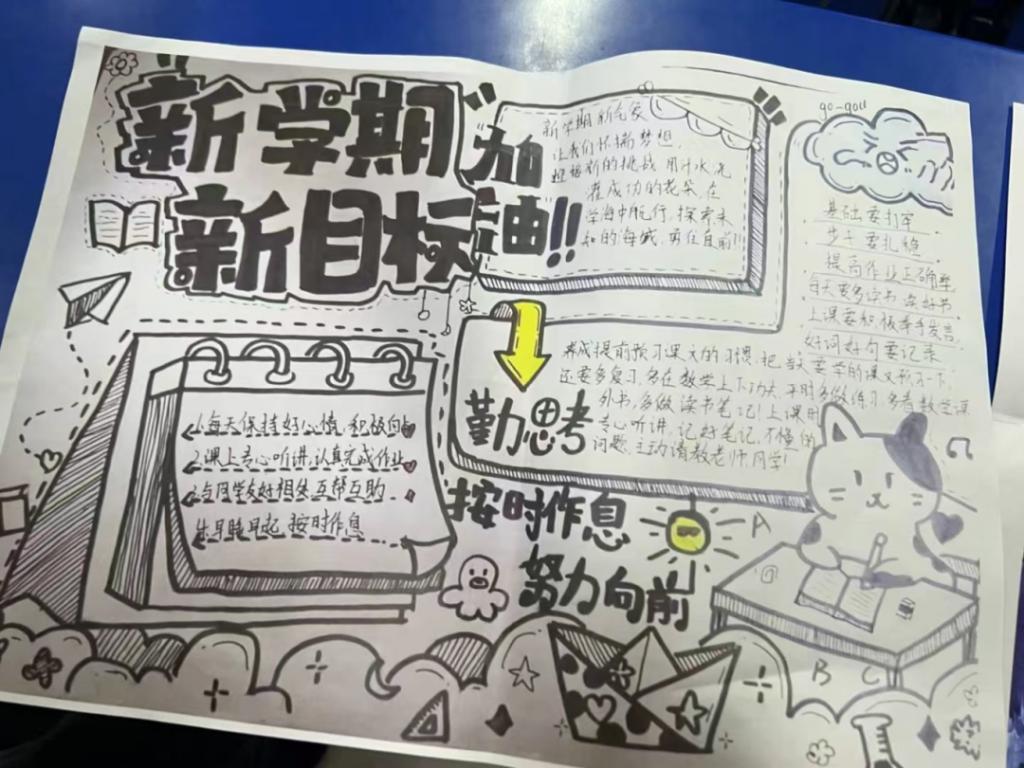 新学期
新目标
加油!!
新学期新气象
让我们怀揣梦想,
迎接新的挑战 用汗水浇
灌成功的花朵 在
学海中航行,探索未
知的海域,勇往直前!!
go-goll
基础要打牢
步子要扎稳
提高作业正确率
每天要多读书 读好书
上课要积极举手发言
好词好句要记录
养成提前预习课文的习惯,把当天要学的课文预习一下,
还要多复习,多在数学上下功夫,平时多做练习,多看数学课
外书,多做读书笔记!上课时
专心听讲,记好笔记,不懂的
问题主动请教老师、同学!
勤思考
1.每天保持好心情,积极向
2.课上专心听讲,认真完成作业
3.与同学友好相处 互帮互助
4.早睡早起 按时作息
按时作息
努力向前
A
B C